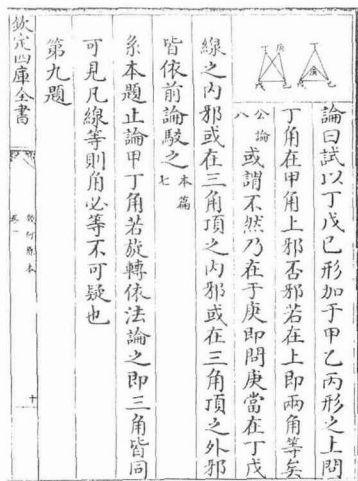 論曰試以丁戊己形加于甲乙丙形之上問
丁角在甲角上邪否邪若在上即兩角等矣
公論八
或謂不然乃在于庚即問庚當在丁戊
線之內邪或在三角頂之內邪或在三角頂之外邪
皆依前論駁之
本篇七
系本題止論甲丁角若旋轉依法論之即三角皆同
可見凡線等則角必等不可疑也
第九題
欽定四庫全書
幾何原本
卷一
十